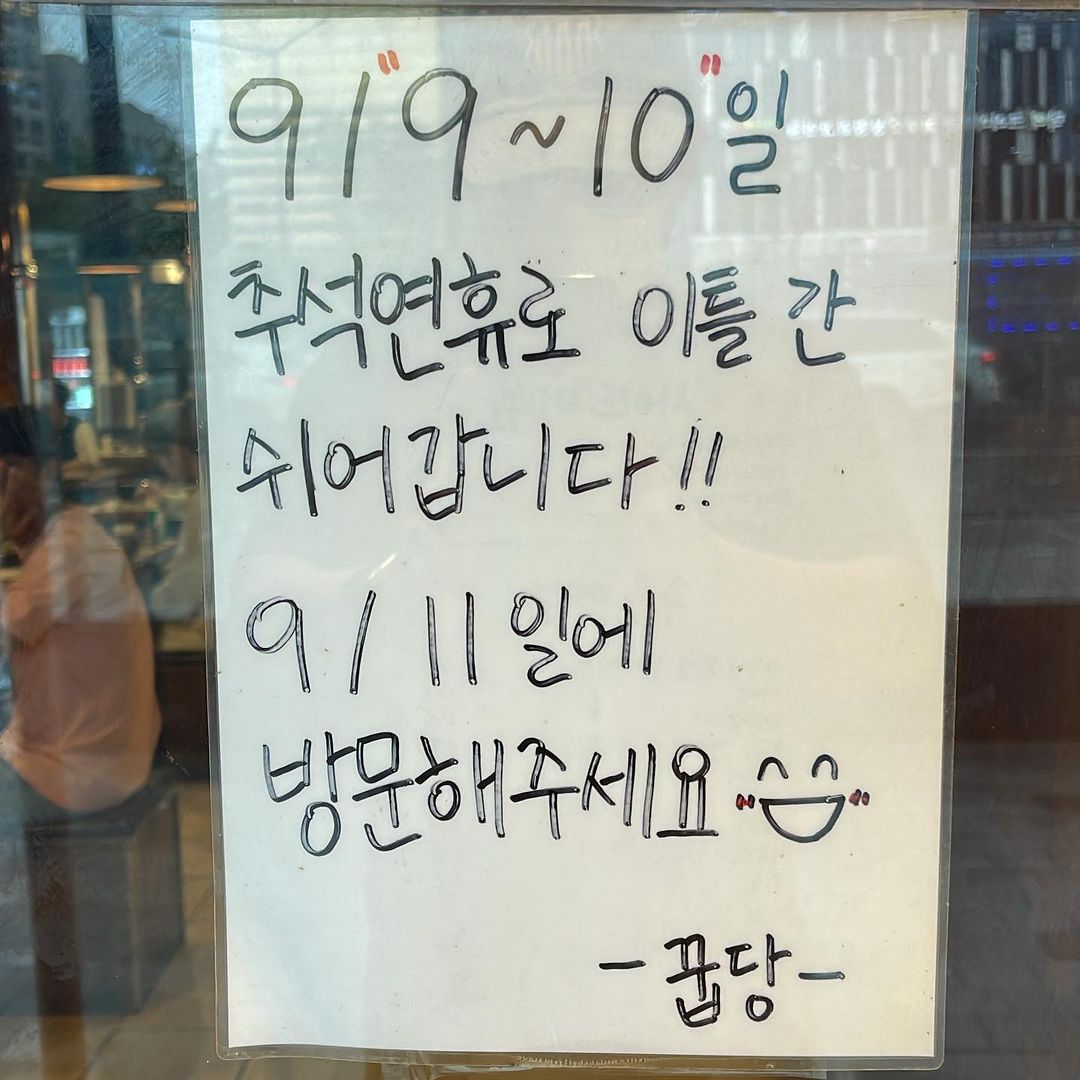 9/"9~10"일
추석연휴로 이틀 간
쉬어갑니다!!
9/11일에
방문해주세요
-꿉당-